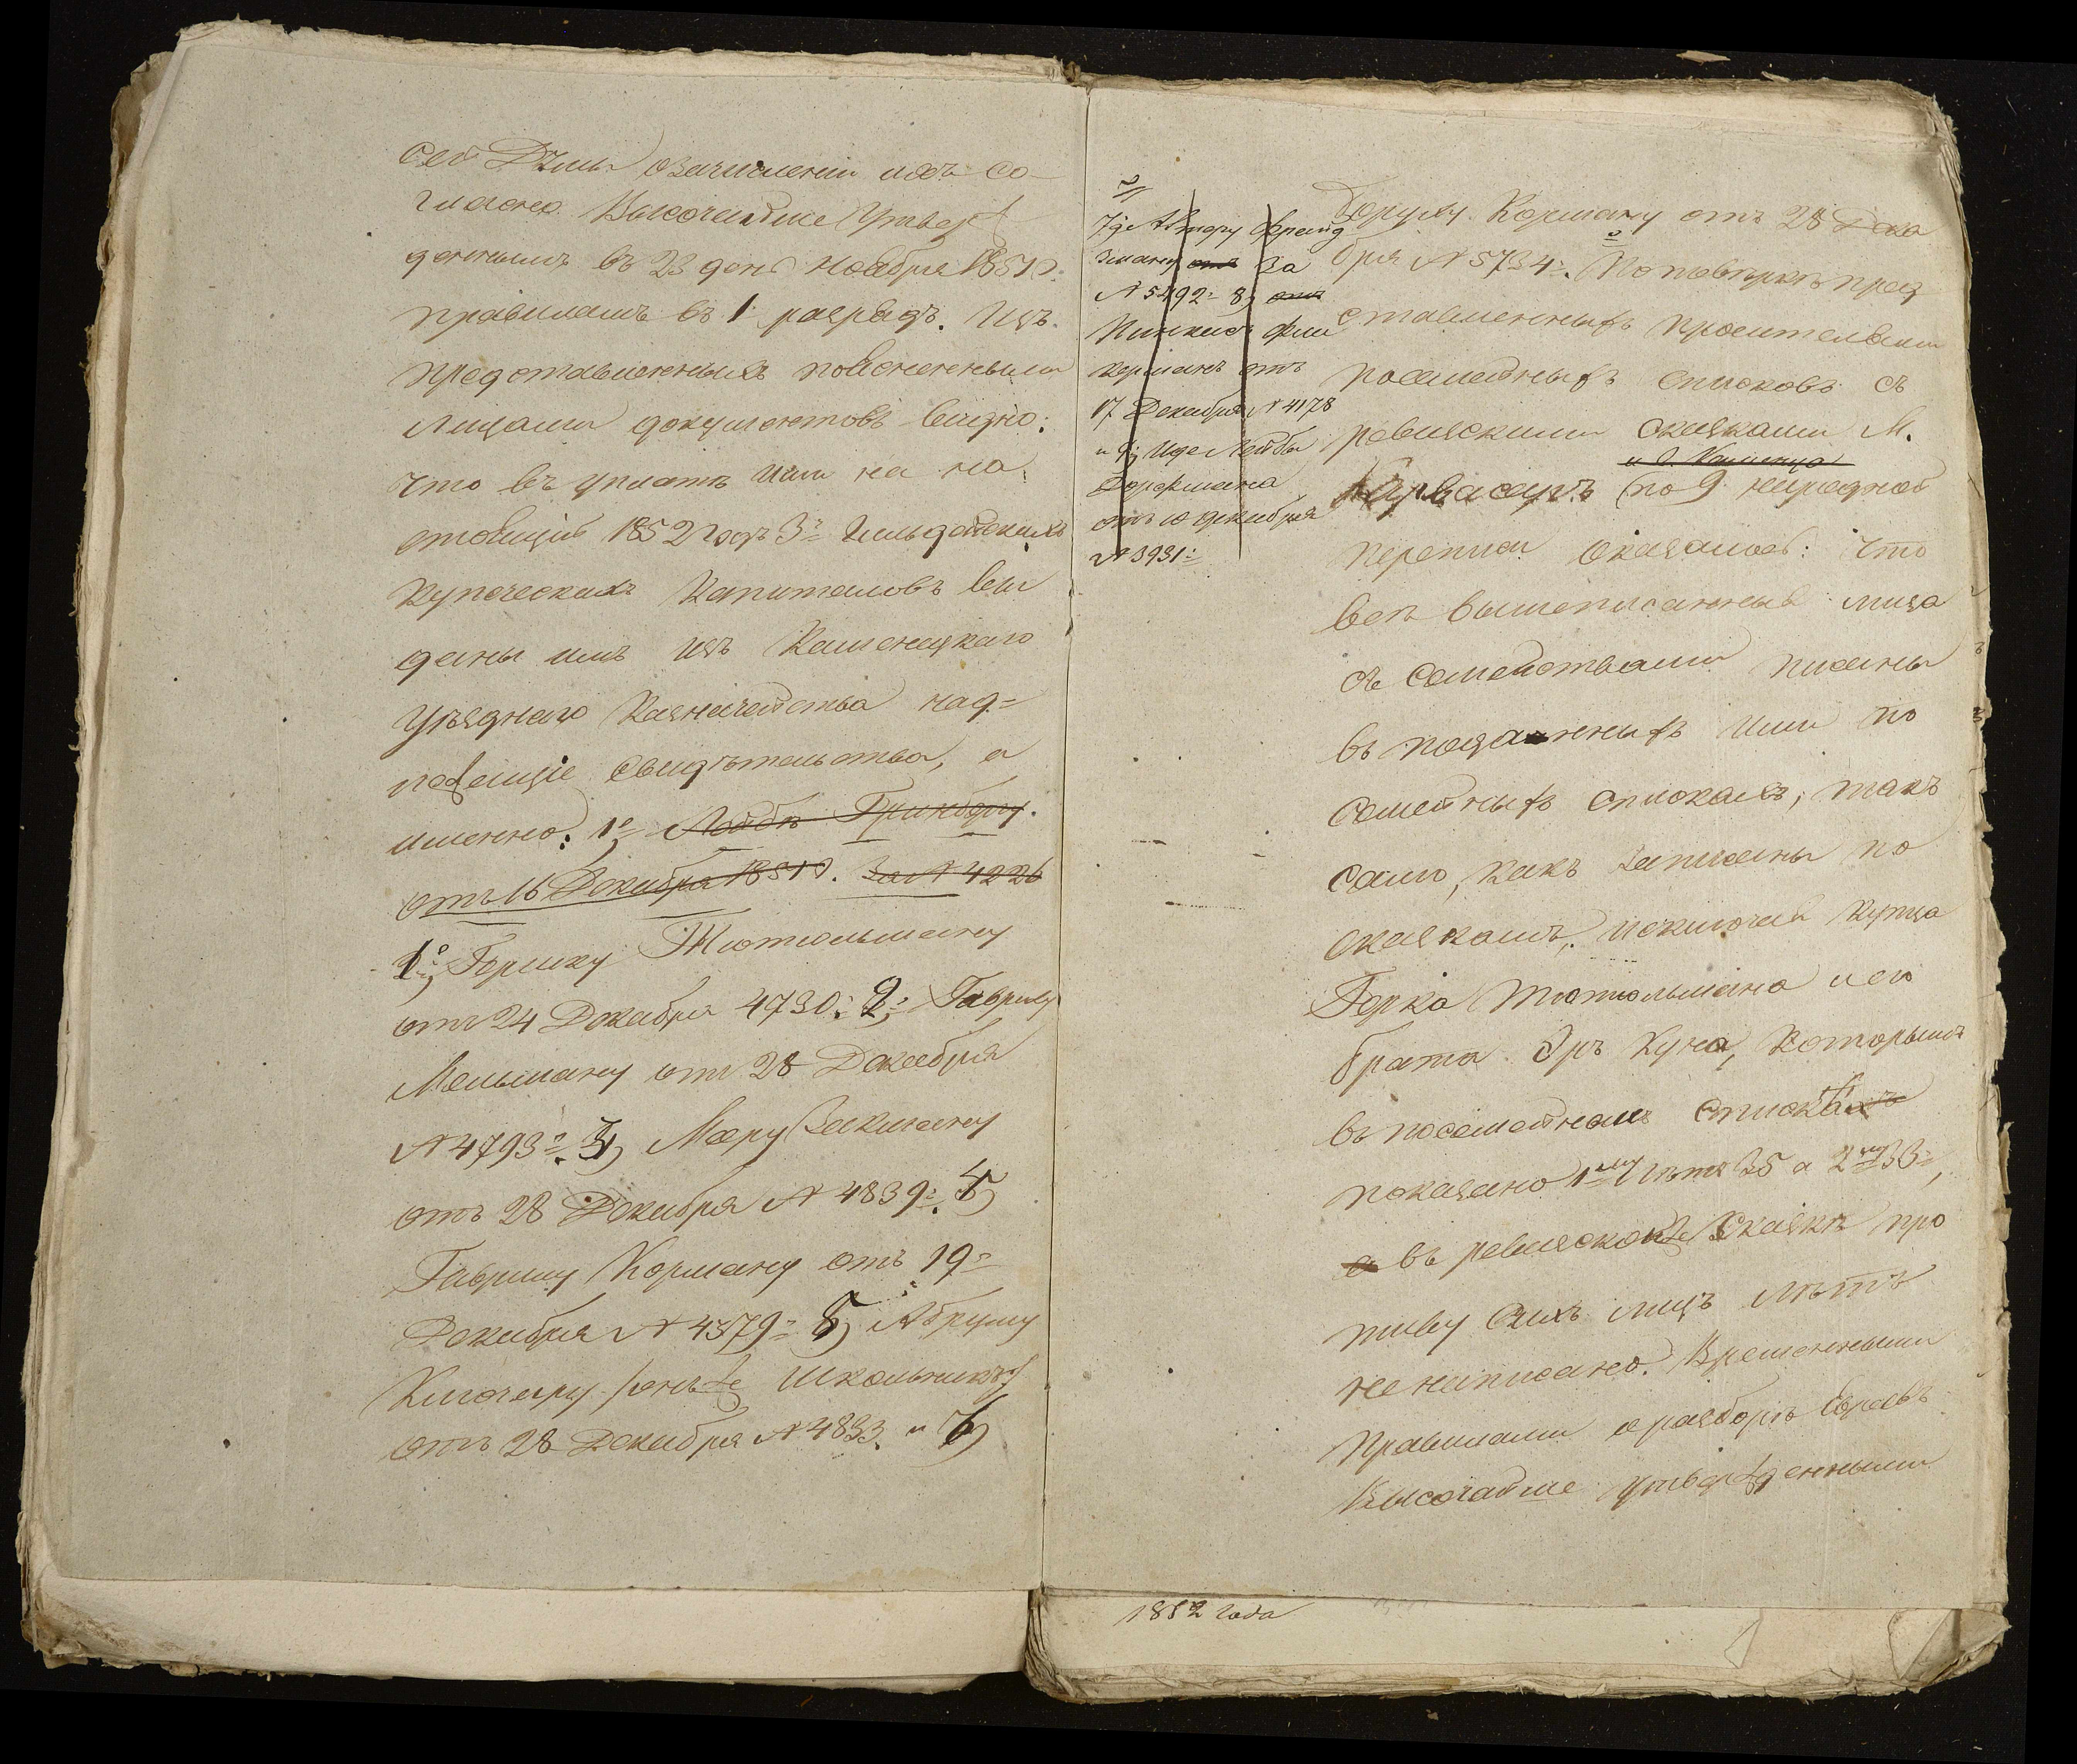 сей Думы о зачислении ихъ со-
гласно Высочайше Утверж
деннымъ въ 23 день ноября 1851 г.
правиламъ въ 1 разрядъ. Изъ
представленныхъ поясненными
лицами документовъ видно:
что въ уплатѣ ими на на-
стоящiй 1852 годъ 3й Гильдейскихъ
купеческихъ Капиталовъ вы
даны имъ изъ Каменецкаго
Уѣзднаго Казначейства над-
лежащiе свидѣтельства, а
именно: 1е, Лейбѣ Гринбергу
отъ 16 Декабря 1851 г. За N 4226
1е, Гершку Тютюльману
отъ 24 Декабря 4730. 2, Гаврилу
Мельману отъ 28 Декабря
N 4793. 3, Меру Закману
отъ 28 Декабря N 4839. 4,
Гаврилу Корману отъ 19
Декабря N 4379. 5, Абруму
Ключеру /онъ же Школьникъ/
отъ 28 Декабря N 4833. и 6,
7, де Автеру Фреид
ману отъ за
N 5492. 8, отъ
Пинкасъ Фми
керманъ отъ
17 Декабря N 4178
и 9, Иде Лейбы
Дорфмана
отъ 10 декабря
N 3931
Борулу Корману отъ 28 Дека
бря N 5734. По повѣркѣ пред
ставленныхъ просителями
посемейныхъ списковъ съ
ревизскими сказками М.
и г. Каменца
Карвасаръ по 9 народной
переписи оказалось: что
всѣ вышеписанные лица
съ семействами писаны
въ поданныхъ ими по
семейныхъ спискахъ, такъ
само, какъ записаны по
сказкамъ, исключая купца
Герка Тютюльмана и его
брата Эръ Куна, которымъ
въ посемейномъ спискахъ
показано 1му лѣтъ 35 а 2му 33,
а въ ревизской же сказкѣ про
тиву сихъ лицъ лѣтъ
не написано. Временными
правилами о разборѣ Евреевъ
Высочайше утвержденными
1852 года